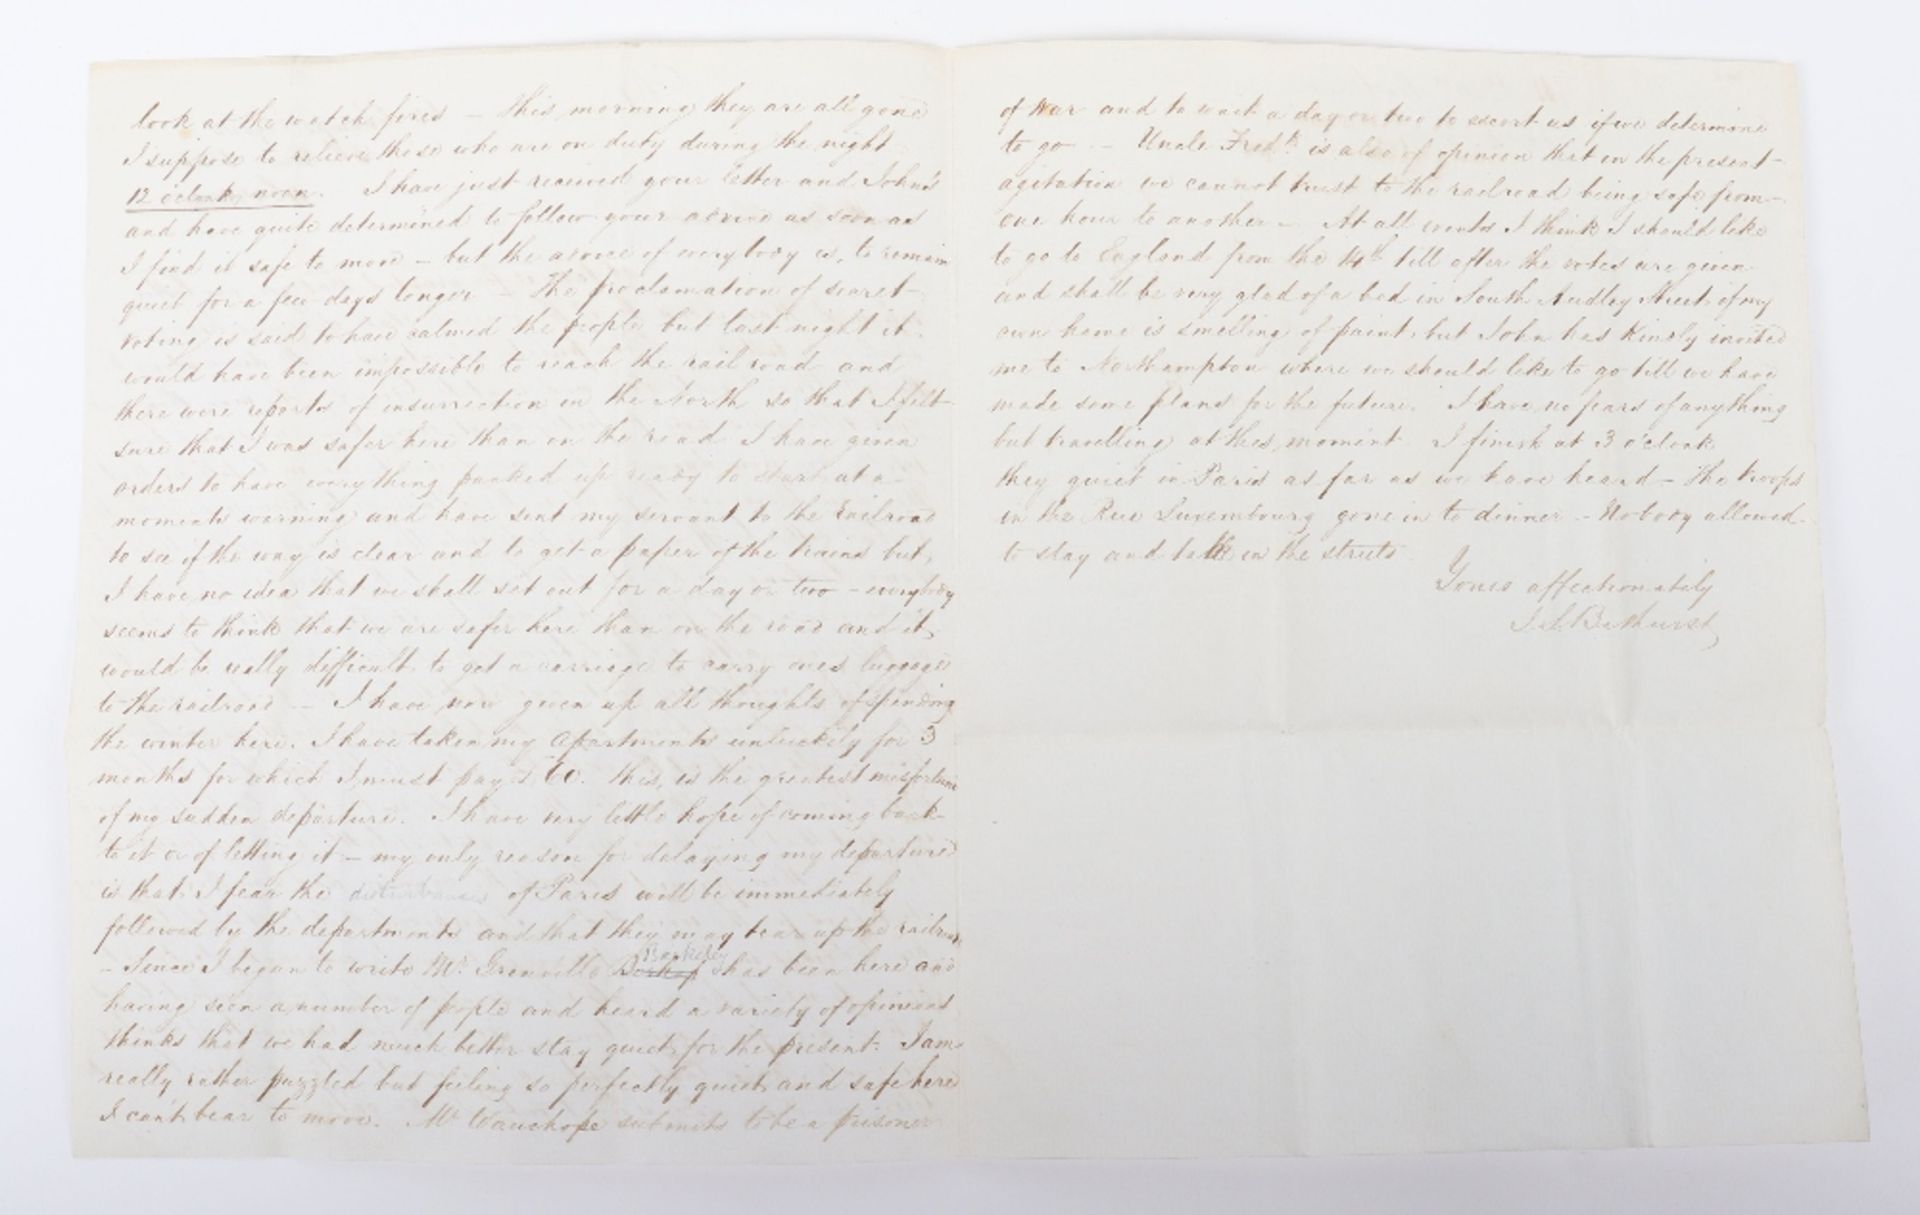 look at the watch fires – this morning they are all gone
I suppose to relieve those who are on duty during the night
12 o'clock, noon. I have just received your letter and John's
and have quite determined to follow your advice as soon as
I find it safe to move – but the advice of everybody is, to remain
quiet for a few days longer – The proclamation of secret
voting is said to have calmed the people but last night it
would have been impossible to reach the rail road and
there were reports of insurrection in the North so that I felt
sure that I was safer here than on the road I have given
orders to have everything packed up ready to start at a
moments warning and have sent my servant to the railroad
to see if the way is clear and to get a paper of the trains but,
I have no idea that we shall set out for a day or two – everybody
seems to think that we are safer here than on the road and it
would be really difficult to get a carriage to carry ones luggage
to the railroad – I have now given up all thoughts of spending
the winter here. I have taken my apartments unluckily for 3
months for which I must pay. this, is the greatest misfortune
of my sudden departure. I have very little hope of coming back
to it or of letting it – my only reason for delaying my departure
is that I fear the disturbances of Paris will be immediately
followed by the departments and that they may tear up the railroad
– Since I began to write Mr. Grenville Berkeley has been here and
having seen a number of people and heard a variety of opinions
thinks that we had much better stay quiet for the present. I am
really rather puzzled but feeling so perfectly quiet and safe here
I can't bear to move. Mr Wauchope submits to be a prisoner
of War and to wait a day or two to escort us if we determine
to go – Uncle Fredk. is also of opinion that in the present
agitation we cannot trust to the railroad being safe from
one hour to another – At all events I think I should like
to go to England from the 14th till after the votes are given
and shall be very glad of a bed in South Audley Street if my
own home is smelling of paint, but John has kindly invited
me to Northampton where we should like to go till we have
made some plans for the future. I have no fears of anything
but travelling at this moment I finish at 3 o'clock
they quiet in Paris as far as we have heard – The troops
in the Rue Luxembourg gone in to dinner – Nobody allowed
to stay and talk in the streets
Yours affectionately
Bathurst